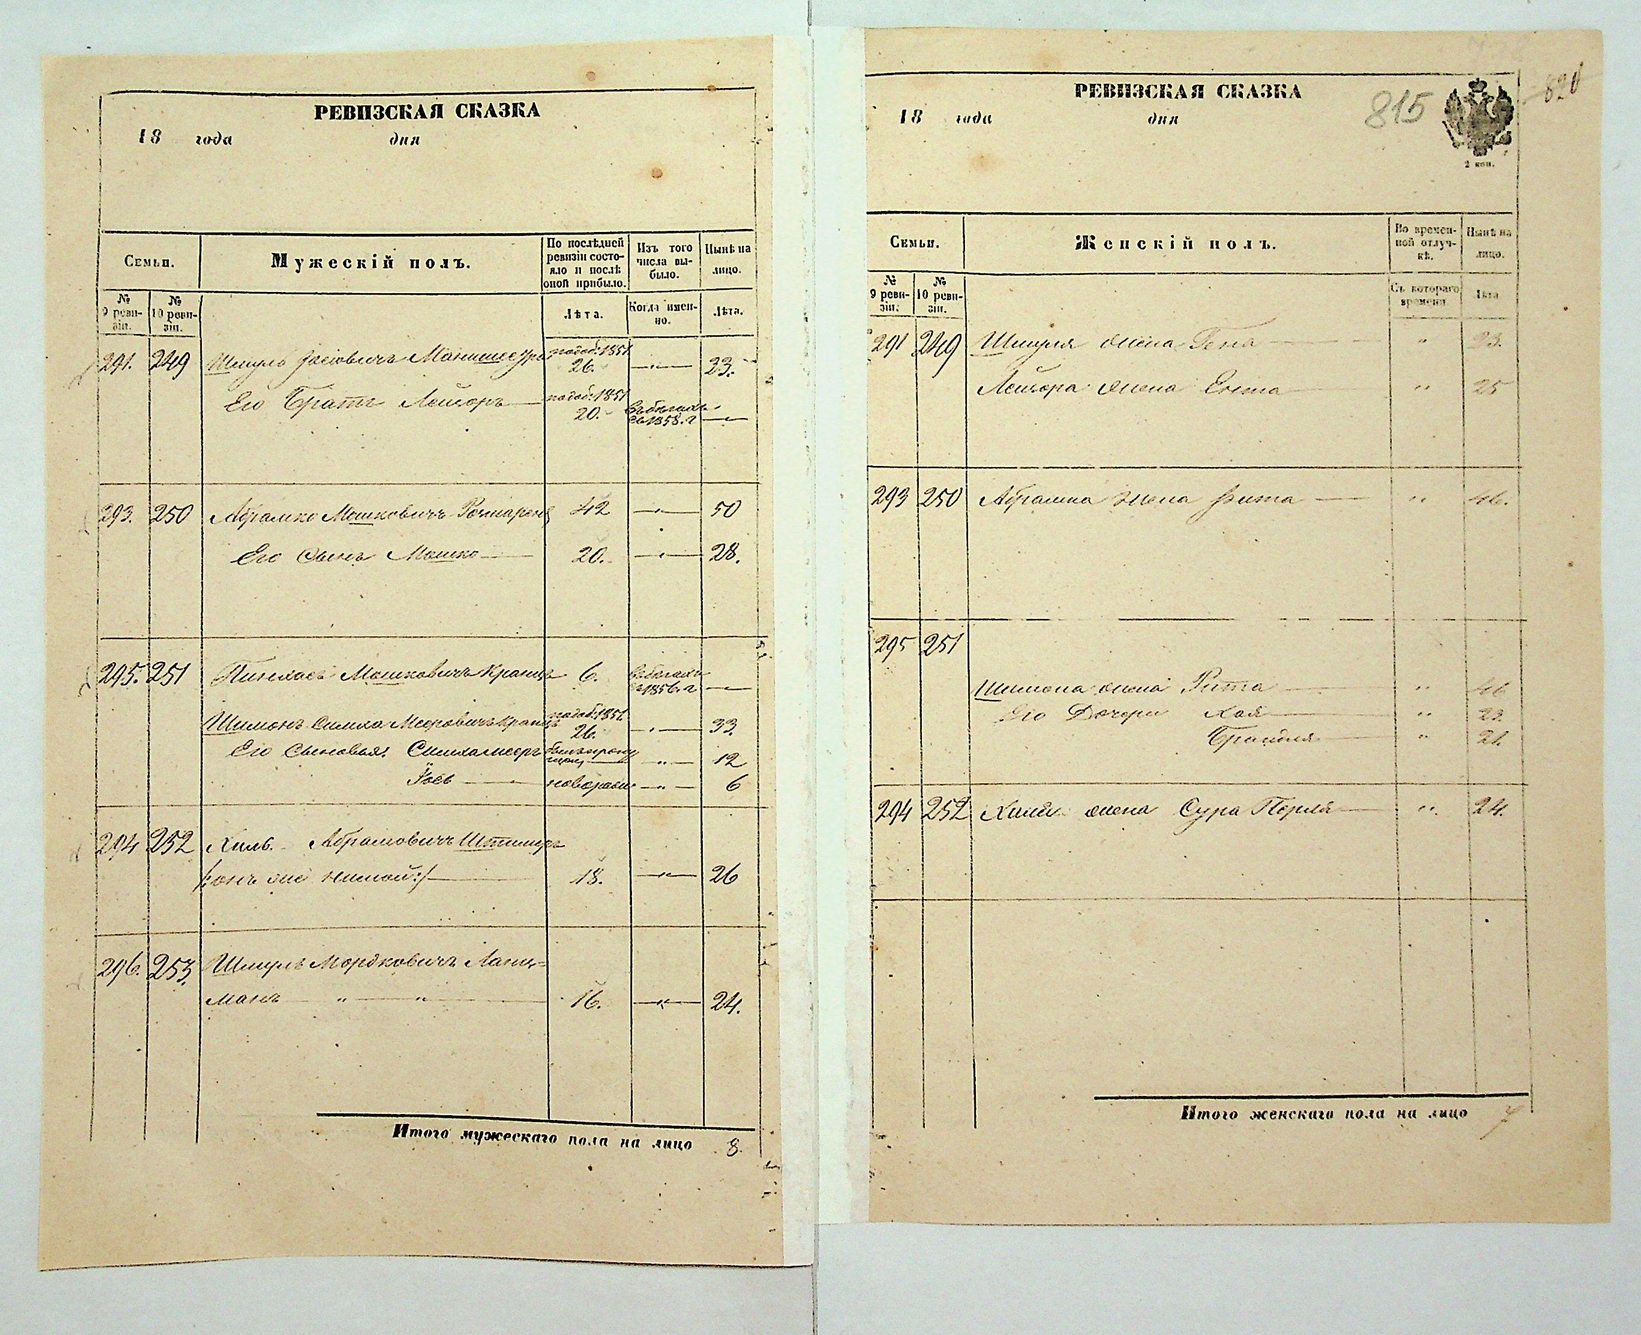 РЕВИЗСКАЯ СКАЗКА
18 года дня
Семьи.
Мужескій полъ.
По послѣдней ревизіи состояло и послѣ оной прибыло.
Изъ того числа выбыло.
Нынѣ на лицо.
№ 9 ревизіи.
№ 10 ревизіи.
Лѣта.
Когда именно.
Лѣта.
291. 249 Шмуль 1851 26. 23.
Его Братъ Лейзоръ 1851 20. съ 1858. г
293. 250 Абрамко Мошковичъ 42 50
Его Сынъ Мошко 20. 28.
295. 251 Пинхасъ Мошковичъ Кранцъ 6. съ 1856. г
Шимонъ Симха Мееровичъ Кранцъ 1851. 26. 33.
Его Сыновья: Симхамееръ 12
6
294 252 Хиль Абрамовичъ
/:онъ же нимой:/ 18. 26
296. 253. Шмуль Мордковичъ
манъ " " 16. 24.
Итого мужескаго пола на лицо 8.
РЕВИЗСКАЯ СКАЗКА
815
18 года дня
2 коп.
Семьи.
Женскій полъ.
Во временной отлучкѣ.
Нынѣ на лицо.
№ 9 ревизіи.
№ 10 ревизіи.
Съ котораго времени
Лѣта
291 249 Шмуля жена Гена " 23.
Лейзора жена Ента " 25
293 250 Абрамка жена Фита " 46.
295 251
Шимона жена Рита " 46
Его Дочери Хая " 23.
" 21.
294 252 Хиля жена Сура Перля " 24.
Итого женскаго пола на лицо 7